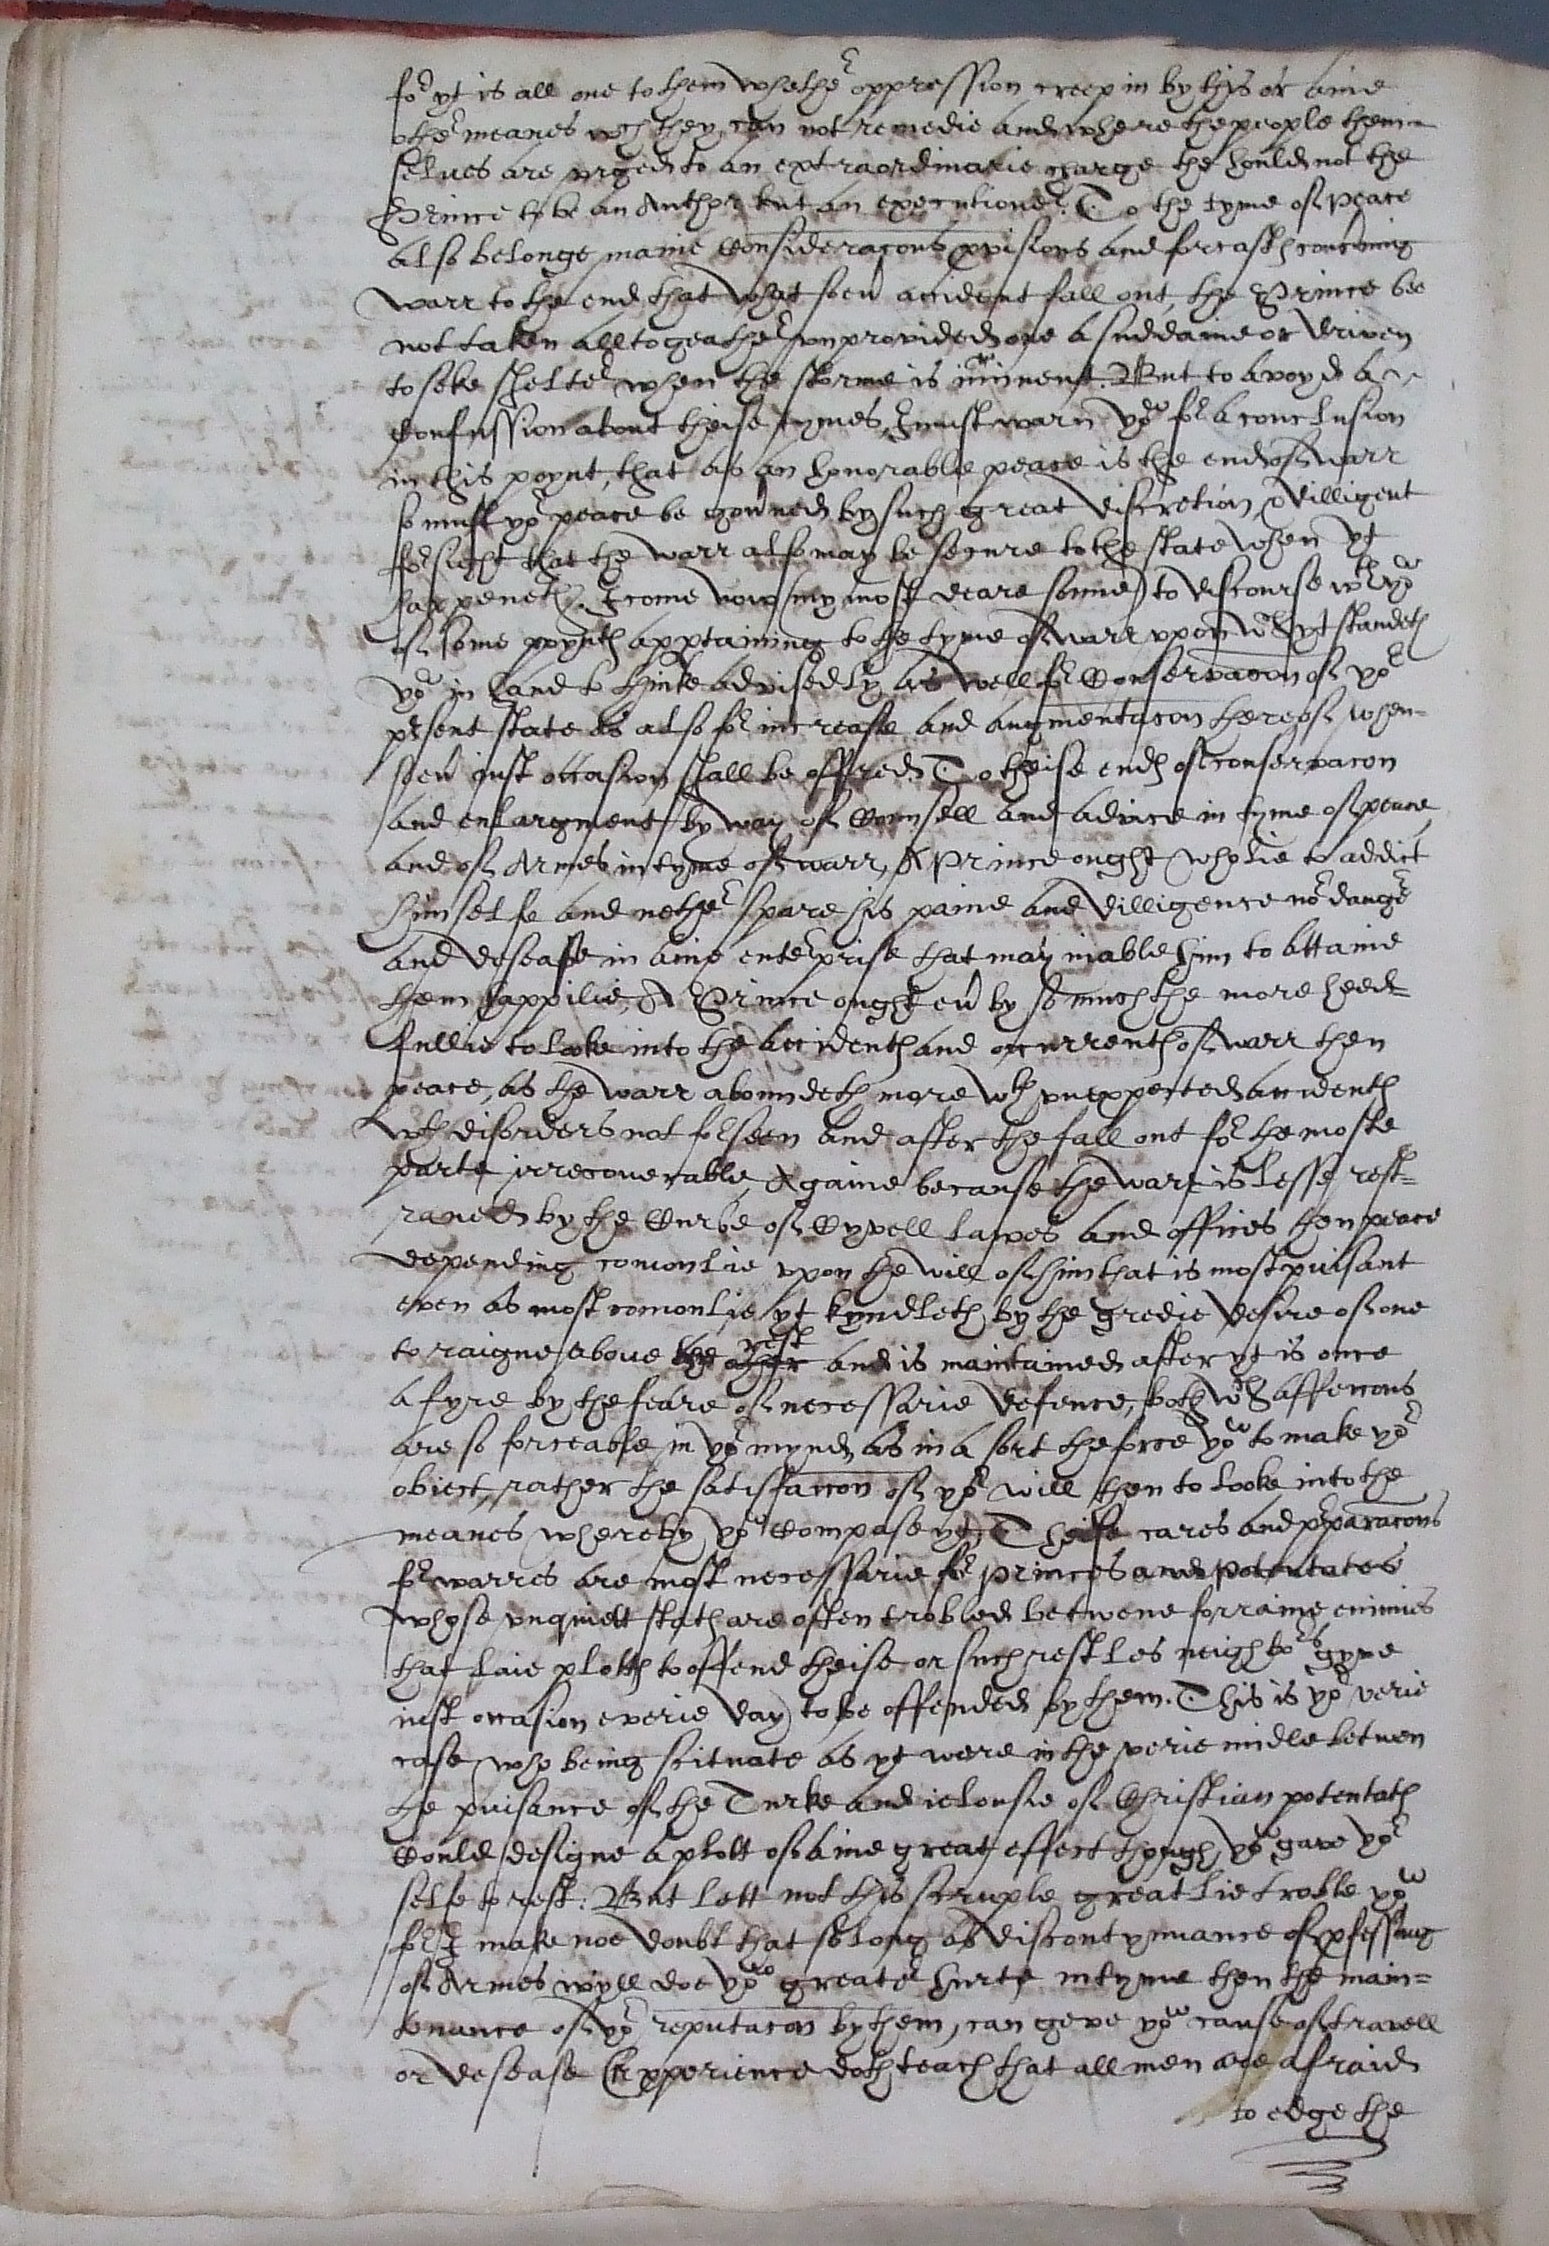 for yt is all one to them whether oppression creep in by this or anie
other meanes wch they can not remedie and where the people them-
selues are vrged to an extraordinarie charge the hould not the
Prince to be an Author but an executioner. To the tyme of peace
also belonge manie Consideracons pvisions and forcasts concerning
warr to the end that what soeu accident fall out, the Prince bee
not taken alltogeather vnprovided one a suddaine or driven
to seke shelter when the storme is iminent. But to avoyd a
Confussion about theise tymes, I must warn you for a conclusion
in this poynt, that as an honorable peace is the end of warr
so must yor peace be gouned by such great discretion & dilligent
forsight that the warr also may be secure to the state when yt
happeneth. I come now (my most deare sonne) to discourse wth you
of some poynts apptaining to the tyme of warr vpon wch yt standeth
you in hand to thinke advisedly as well for Conservacon of yor
psent state as also for increase and augmentacon thereof when-
soeu iust occasion shall be offred. To theise ends of conservacon
and enlargment by way of Counsell and advice in tyme of peace
and of Armes in tyme of warr, A Prince ought wholie to addict
himselfe and nether spare his paine and dilligence nor danger
and desease in anie enterprise that may inable him to attaine
them happilie, A Prince ought eu by so much the more heed-
fullie to looke into the accidents and occurrents of warr then
peace, as the warr aboundeth more wth vnexpected accidents
wth disorders not forseen and after the fall out for the moste
parte irrecouerable, Againe because the warr is lesse rest-
rained by the Curbe of Cyvell lawes and offices then peace
depending comonlie vpon the will of him that is most puisant
even as most comonlie yt kyndleth by the gredie desire of one
to raigne aboue the other rest and is maintained after yt is once
a fyre by the feare of necessarie defence, both wch affeccons
are so forceable in yor mynd as in a sort the force you to make yor
obiect rather the satisfaccon of yor will then to looke into the
meanes whereby you Compase yt. Theise cares and pparacons
for warres are most necessarie for princes and Potentates
whose vnquiett stats are often trobled betwene forraine enimies
that laie plotts to offend theise or such restles neighbors gyve
iust occasion everie day to be offended by them. This is yor verie
case who being scituate as yt were in the verie midle betwen
the puisance of the Turke and ielousie of Christian potentats
Could designe a plott of anie great effect though you gave yor
selfe to rest: But lett not this scruple greatlie troble you
for I make noe doubt that so long as discontynuance of pfessing
of Armes wyll doe you greater hurte in tyme then the main-
tenance of yor reputacon by them, can geve you cause of travell
or desease Experience doth teach that all men are afraid
to edge the